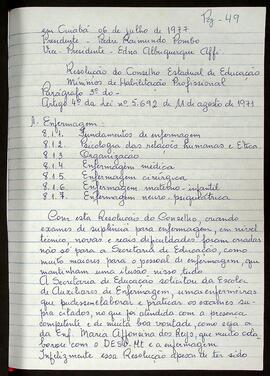 Pg - 49
em Cuiabá 06 de julho de 1977
Presidente - Pedro Raimundo Pombo
Vice-Presidente - Edna Albuquerque Affi
Resolução do Conselho Estadual de Educação
Mínimos de Habilitação Profissional
Parágrafo 3º do -
Artigo 4º da Lei nº 5.692 de 11 de agosto de 1971
1. Enfermagem:
8.1.1. Fundamentos de enfermagem
8.1.2. Psicologia das relações humanas e Etica
8.1.3 Organização
8.1.4 Enfermagem médica
8.1.5 Enfermagem cirúrgica
8.1.6 Enfermagem materno-infantil
8.1.7. Enfermagem neuro-psiquiátrica
Com esta Resolução do Conselho, criando
exames de suplência para enfermagem, em nível
técnico, novas e reais dificuldades foram criadas
não só para a Secretaria de Educação, como
muito maiores para o pessoal de enfermagem, que
mantinham uma ilusão, nisso tudo
A Secretaria de Educação solicitou da Escola
de Auxiliares de Enfermagem, umas enfermeiras
que pudessem elaborar e praticar os exames su
pra citados, no que foi atendida com a presença
competente e de muita boa vontade, como seja a
da Enf. Maria Affonsina dos Reys, que muito cola
borou com o DESU-Mt e a enfermagem
Infelizmente essa Resolução apesar de ter sido